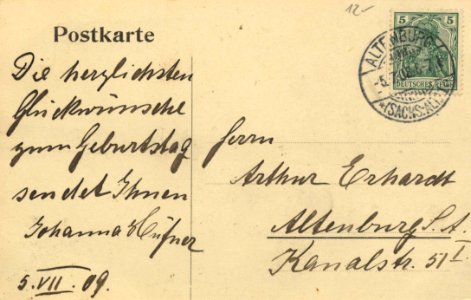 12.-
Postkarte
Die herzlichsten
Glückwünsche
zum Geburtstag
sendet Ihnen
Johanna Hüfner
5.VII.09.
5 5
DEUTSCHES REICH
ALTENBURG
(SACHS.-ALT.)
Herrn
Arthur Erhardt
Altenburg S.A.
Kanalstr. 51 I